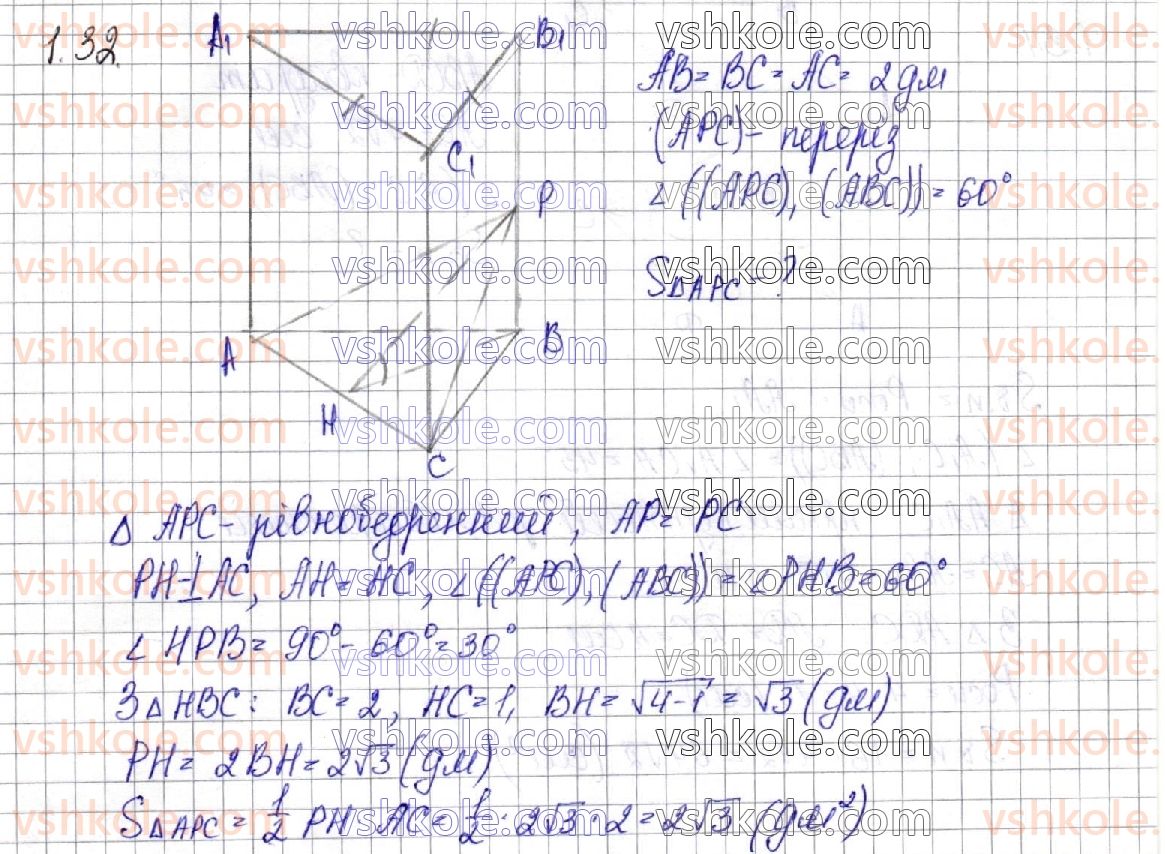 1.32.
A₁
B₁
C₁
P
A
B
H
C
AB = BC = AC = 2 дм
(APC) - переріз
∠((APC), (ABC)) = 60°
S△APC - ?
△ APC - рівнобедренний, AP = PC
PH ⊥ AC, AH = HC, ∠((APC), (ABC)) = ∠PHB = 60°
∠HPB = 90° - 60° = 30°
З △HBC: BC = 2, HC = 1, BH = √4-1 = √3 (дм)
PH = 2BH = 2√3 (дм)
S△APC = 1/2 PH · AC = 1/2 · 2√3 · 2 = 2√3 (дм²)
vshkole.com